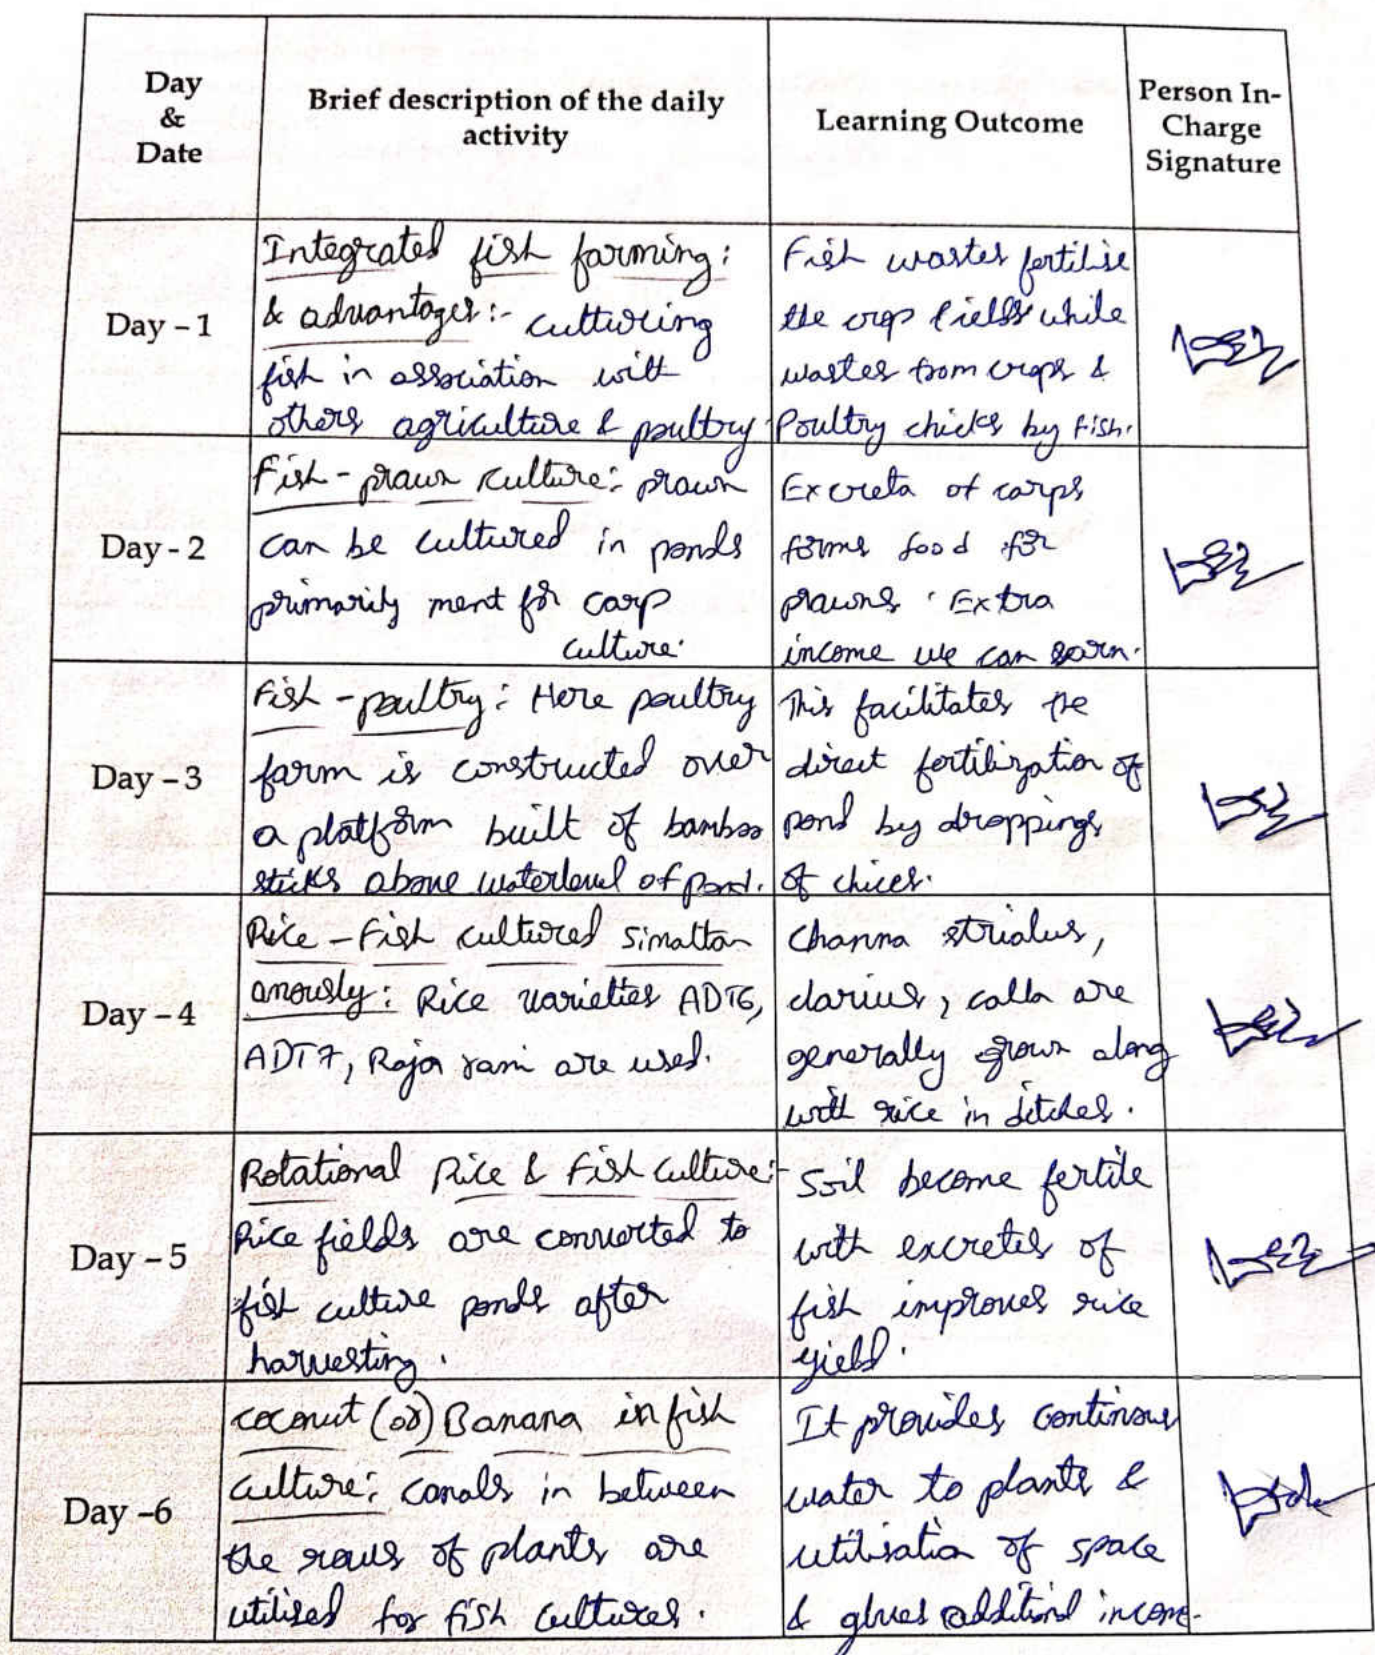 Day
&
Date
Brief description of the daily
activity
Learning Outcome
Person In-
Charge
Signature
Day – 1
Integrated fish farming:
& advantages:- culturing
fish in association with
others agriculture & poultry
Fish wastes fertilise
the crop fields while
wastes from crops &
Poultry chicks by fish.
Day - 2
Fish - prawn culture: prawn
can be cultured in ponds
primarily ment for carp
culture.
Excreta of carps
forms food for
prawns. Extra
income we can earn.
Day – 3
Fish - poultry: Here poultry
farm is constructed over
a platform built of bamboo
sticks above waterlevel of pond.
This facilitates the
direct fertilization of
pond by droppings
of chices.
Day – 4
Rice - Fish cultured simaltan
anously: Rice varieties ADT6,
ADT7, Raja rani are used.
Channa strialus,
clarius, calla are
generally grown along
with rice in ditches.
Day – 5
Rotational Rice & Fish culture:-
Rice fields are converted to
fish culture ponds after
harvesting.
Soil become fertile
with excretes of
fish improves rice
yield.
Day –6
coconut (or) Banana in fish
culture: canals in between
the rows of plants are
utilised for fish cultures.
It provides continous
water to plants &
utilisation of space
& gives additional income.